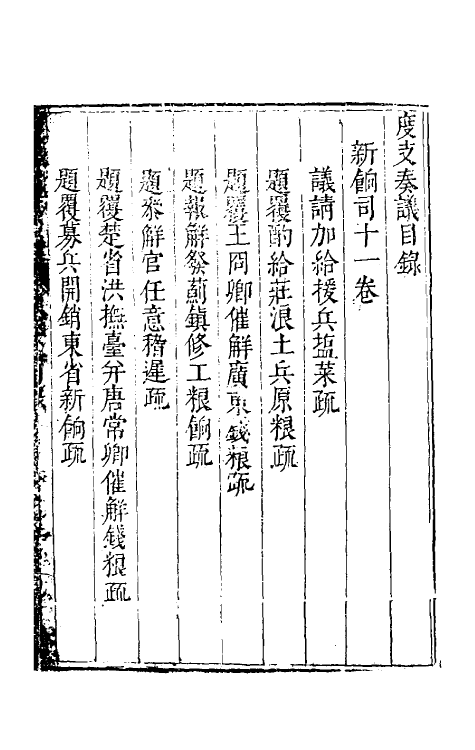 度支奏議目錄
新餉司十一卷
議請加給援兵塩菜疏
題覆酌給莊浪土兵原粮疏
題覆王冏卿催解廣東錢粮疏
題報解發薊鎮修工粮餉疏
題叅解官任意稽遲疏
題覆楚省洪撫臺并唐常卿催解錢粮疏
題覆募兵開銷東省新餉疏